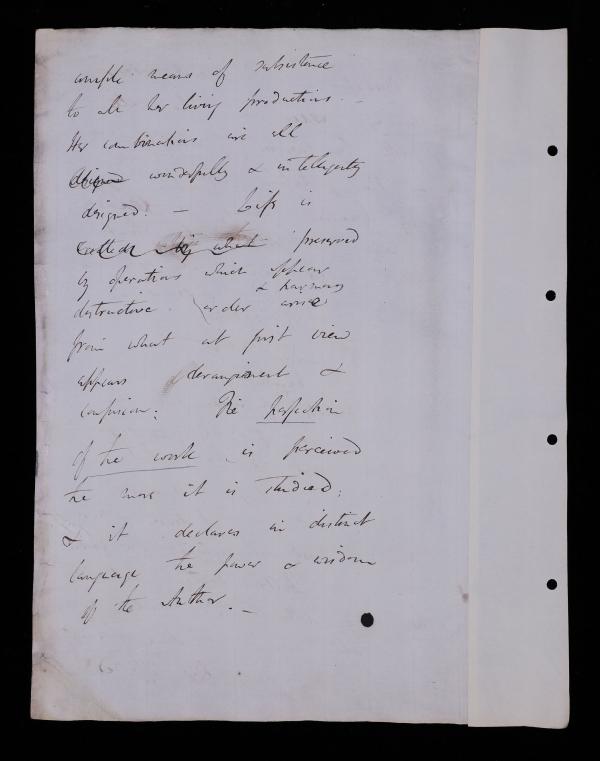 ample means of subsistence
to all her living productions. –
Her combinations are all
wonderfully & intelligently
designed. – Life is
called by what preserved
by operations which appear
& harmony
destructive. order arise
from what at first view
appears derangement &
confusion: The perfection
of the work is perceived
the more it is studied;
& it declares in distinct
language the power & wisdom
of the Author. –